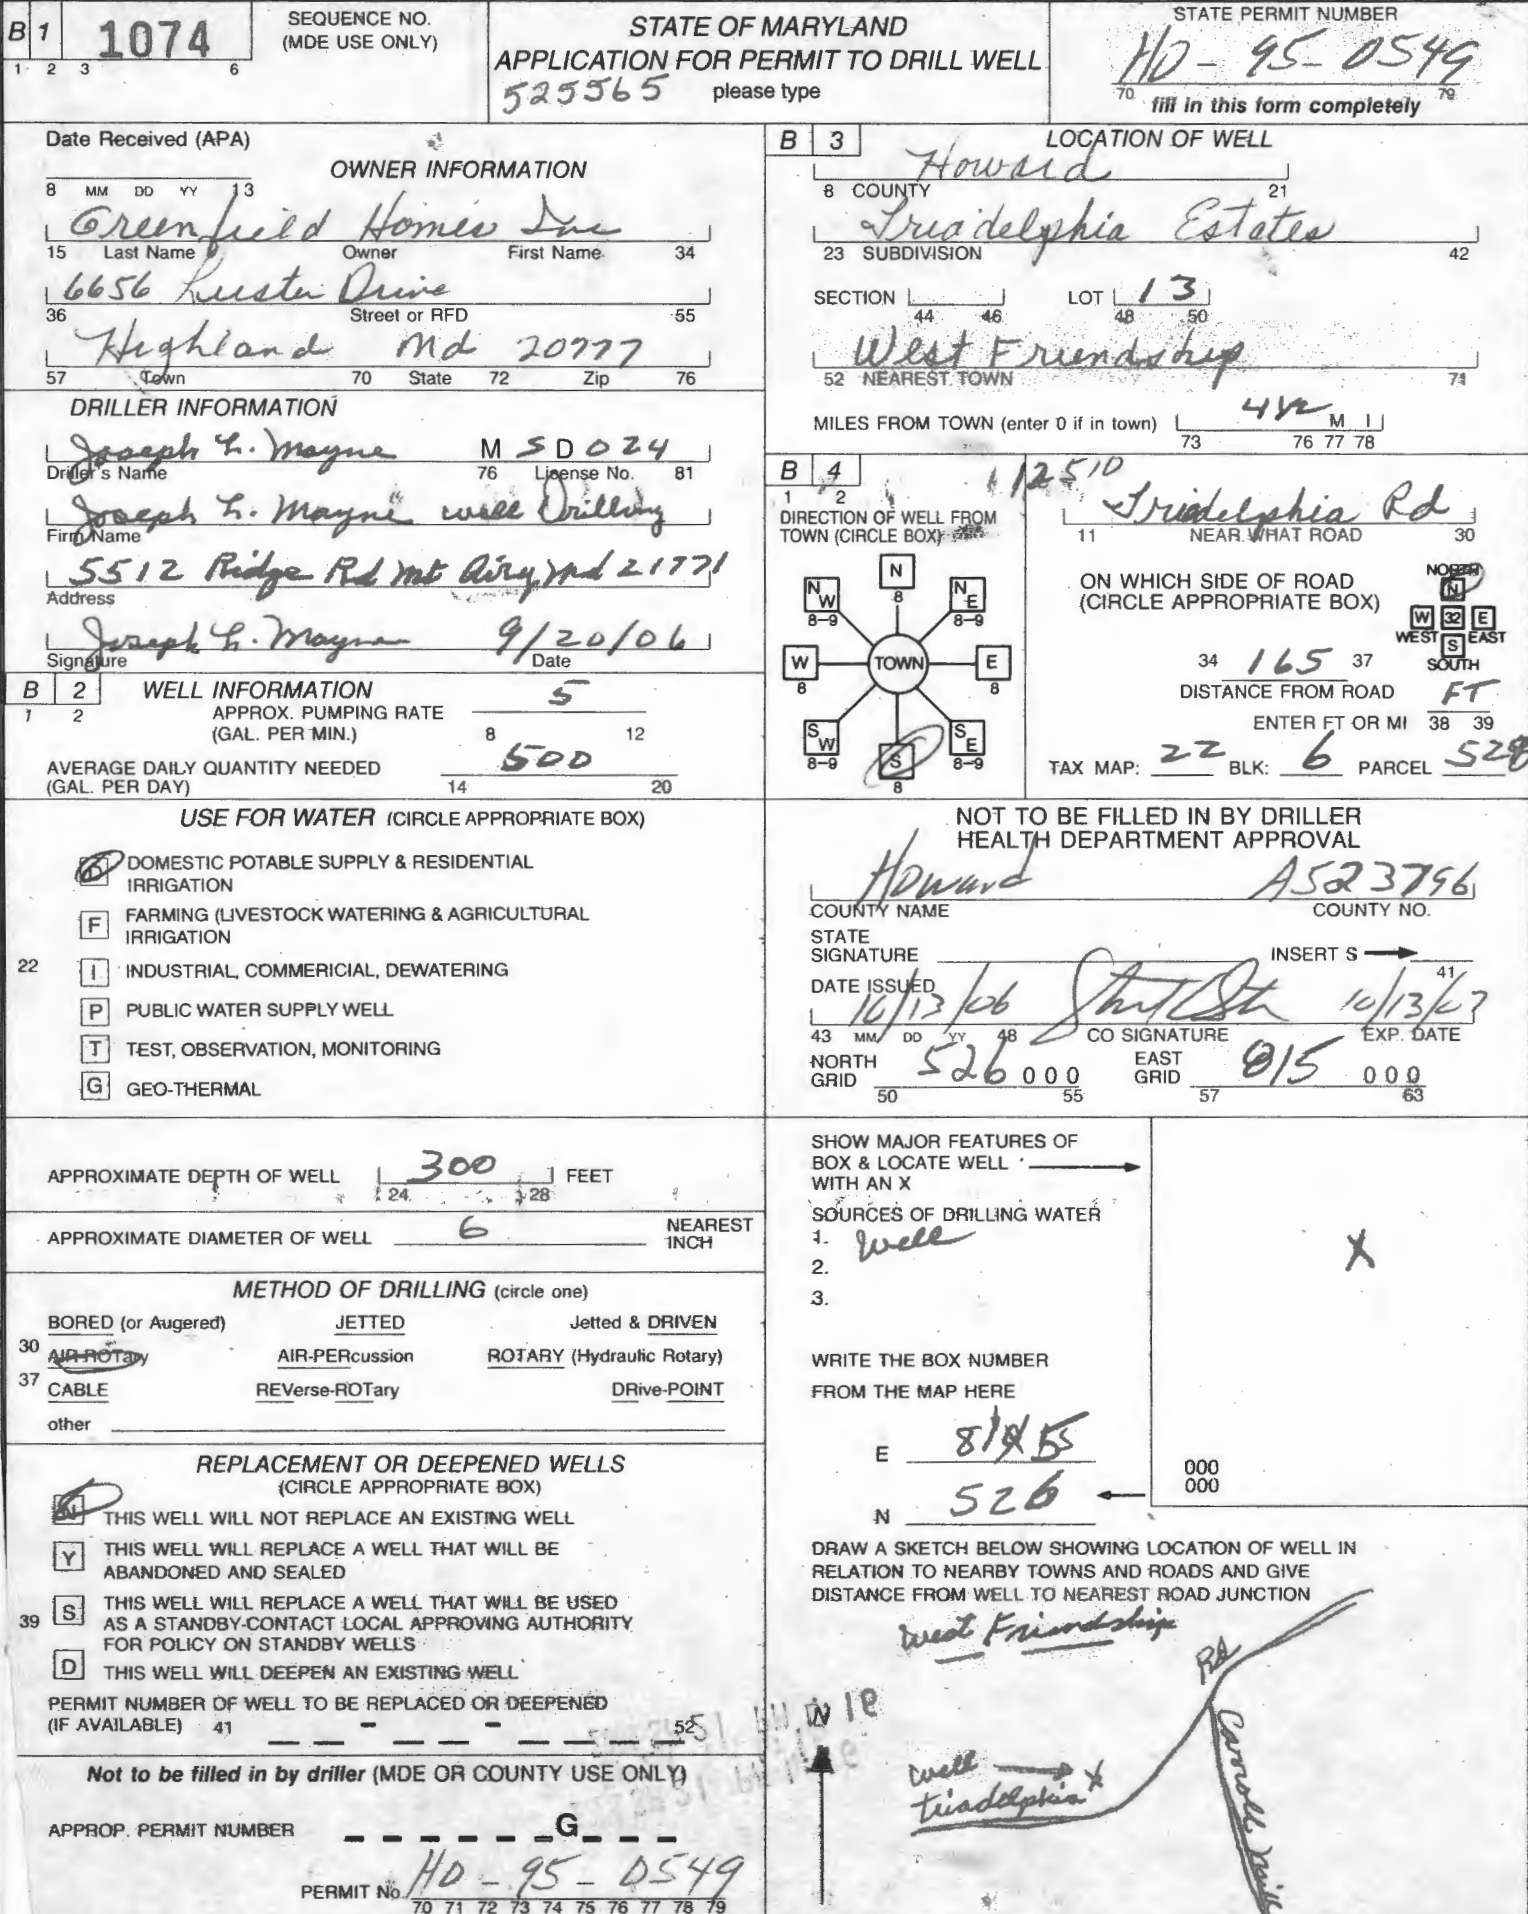 B 1 1074
1 2 3 6
SEQUENCE NO.
(MDE USE ONLY)
STATE OF MARYLAND
APPLICATION FOR PERMIT TO DRILL WELL
525565 please type
STATE PERMIT NUMBER
HO - 95 - 0549
70 79
fill in this form completely
Date Received (APA)
8 MM DD YY 13
OWNER INFORMATION
Greenfield Homes Inc
15 Last Name Owner First Name 34
6656 Luster Drive
36 Street or RFD 55
Highland Md 20777
57 Town 70 State 72 Zip 76
DRILLER INFORMATION
Joseph L. Mayne M S D 024
Driller's Name 76 License No. 81
Joseph L. Mayne well Drilling
Firm Name
5512 Ridge Rd Mt Airy, Md 21771
Address
Joseph L. Mayne 9/20/06
Signature Date
B 2 WELL INFORMATION
1 2
APPROX. PUMPING RATE 5
(GAL. PER MIN.) 8 12
AVERAGE DAILY QUANTITY NEEDED 500
(GAL. PER DAY) 14 20
USE FOR WATER (CIRCLE APPROPRIATE BOX)
D DOMESTIC POTABLE SUPPLY & RESIDENTIAL
IRRIGATION
F FARMING (LIVESTOCK WATERING & AGRICULTURAL
IRRIGATION
22 I INDUSTRIAL, COMMERICIAL, DEWATERING
P PUBLIC WATER SUPPLY WELL
T TEST, OBSERVATION, MONITORING
G GEO-THERMAL
APPROXIMATE DEPTH OF WELL 300 FEET
24 28
APPROXIMATE DIAMETER OF WELL 6 NEAREST
INCH
METHOD OF DRILLING (circle one)
BORED (or Augered) JETTED Jetted & DRIVEN
30 AIR-ROTary AIR-PERcussion ROTARY (Hydraulic Rotary)
37 CABLE REVerse-ROTary DRive-POINT
other
REPLACEMENT OR DEEPENED WELLS
(CIRCLE APPROPRIATE BOX)
N THIS WELL WILL NOT REPLACE AN EXISTING WELL
Y THIS WELL WILL REPLACE A WELL THAT WILL BE
ABANDONED AND SEALED
39 S THIS WELL WILL REPLACE A WELL THAT WILL BE USED
AS A STANDBY-CONTACT LOCAL APPROVING AUTHORITY
FOR POLICY ON STANDBY WELLS
D THIS WELL WILL DEEPEN AN EXISTING WELL
PERMIT NUMBER OF WELL TO BE REPLACED OR DEEPENED
(IF AVAILABLE) 41 - - 52
Not to be filled in by driller (MDE OR COUNTY USE ONLY)
APPROP. PERMIT NUMBER G
PERMIT No. HO - 95 - 0549
70 71 72 73 74 75 76 77 78 79
B 3 LOCATION OF WELL
Howard
8 COUNTY 21
Triadelphia Estates
23 SUBDIVISION 42
SECTION LOT 13
44 46 48 50
West Friendship
52 NEAREST TOWN 71
MILES FROM TOWN (enter 0 if in town) 4 1/2 M I
73 76 77 78
B 4
1 2
DIRECTION OF WELL FROM
TOWN (CIRCLE BOX)
N
8
NW NE
8-9 8-9
W TOWN E
8 8
SW SE
8-9 S 8-9
8
12510
Triadelphia Rd
11 NEAR WHAT ROAD 30
ON WHICH SIDE OF ROAD
(CIRCLE APPROPRIATE BOX)
NORTH
N
W 32 E
WEST S EAST
SOUTH
34 165 37
DISTANCE FROM ROAD FT
ENTER FT OR MI 38 39
TAX MAP: 22 BLK: 6 PARCEL 528
NOT TO BE FILLED IN BY DRILLER
HEALTH DEPARTMENT APPROVAL
Howard A523796
COUNTY NAME COUNTY NO.
STATE
SIGNATURE INSERT S
41
DATE ISSUED
10/13/06 10/13/07
43 MM DD YY 48 CO SIGNATURE EXP. DATE
NORTH
GRID 526 000
50 55
EAST
GRID 815 000
57 63
SHOW MAJOR FEATURES OF
BOX & LOCATE WELL
WITH AN X
X
SOURCES OF DRILLING WATER
1. Well
2.
3.
WRITE THE BOX NUMBER
FROM THE MAP HERE
E 815
N 526
000
000
DRAW A SKETCH BELOW SHOWING LOCATION OF WELL IN
RELATION TO NEARBY TOWNS AND ROADS AND GIVE
DISTANCE FROM WELL TO NEAREST ROAD JUNCTION
West Friendship
Rd
N
Carrolls Mill
well X
triadelphia